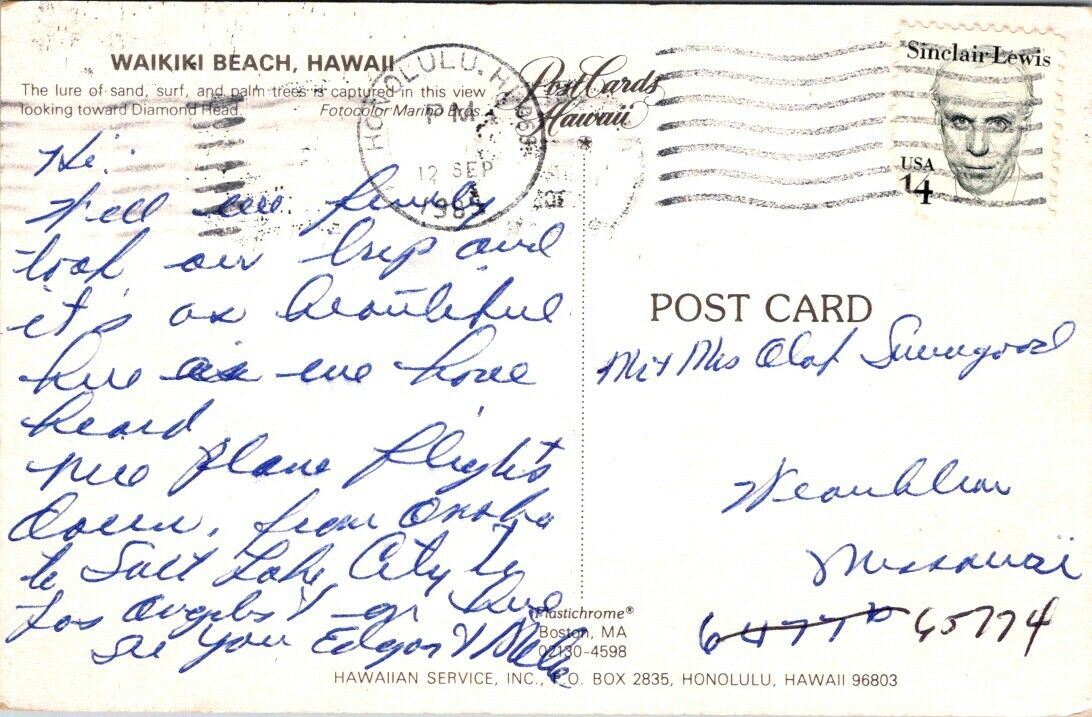 WAIKIKI BEACH, HAWAII
The lure of sand, surf, and palm trees is captured in this view
looking toward Diamond Head.
Fotocolor Marino Bros.
PostCards
Hawaii
HONOLULU, HI 968
PM
12 SEP
1985
Sinclair Lewis
USA
14
Hi.
Well we finally
took our trip and
it's as beautiful
here as we have
heard
nice plane flights
down, from Omaha
to Salt Lake City to
Los Angeles & on here
see you Edgar &
POST CARD
Mr & Mrs Olaf
Missouri
65774
Plastichrome®
Boston, MA
02130-4598
HAWAIIAN SERVICE, INC., P.O. BOX 2835, HONOLULU, HAWAII 96803